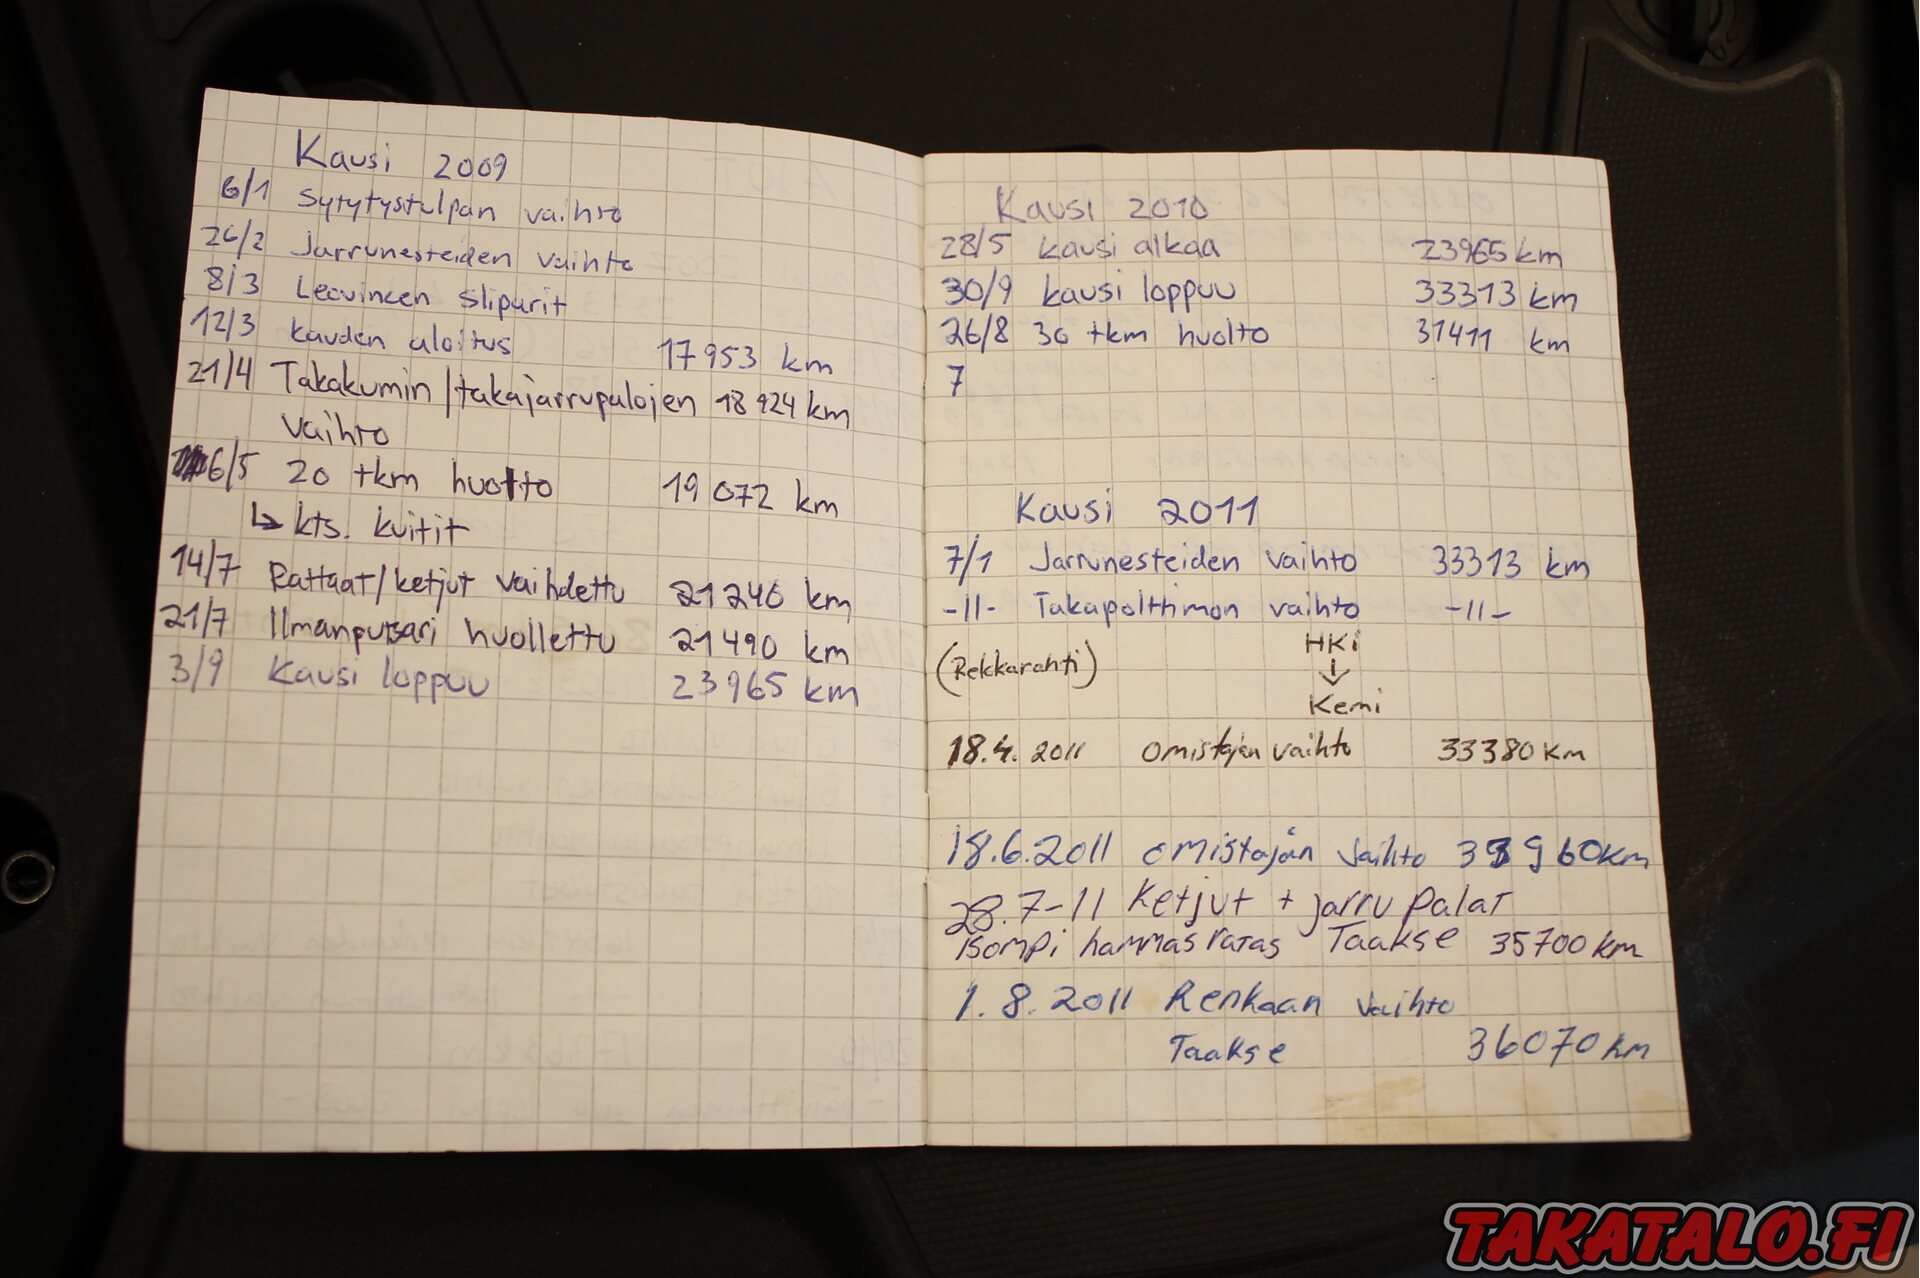 Kausi 2009
6/1 Sytytystulpan vaihto
26/2 Jarrunesteiden vaihto
8/3 Leovincen slipurit
12/3 kauden aloitus 17953 km
21/4 Takakumin/takajarrupalojen 18924 km
vaihto
6/5 20 tkm huolto 19072 km
↳ kts. kuitit
14/7 Rattaat/ketjut vaihdettu 21240 km
21/7 Ilmanputsari huollettu 21490 km
3/9 Kausi loppuu 23965 km
Kausi 2010
28/5 kausi alkaa 23965 km
30/9 kausi loppuu 33313 km
26/8 30 tkm huolto 31411 km
7
Kausi 2011
7/1 Jarrunesteiden vaihto 33313 km
-11- Takapolttimon vaihto -11-
(Rekkarahti) HKi
↓
Kemi
18.4.2011 omistajan vaihto 33380 km
18.6.2011 omistajan vaihto km
28.7-11 Ketjut + jarru Palat
isompi hammasratas Taakse 35700 km
1.8.2011 Renkaan vaihto
Taakse 36070 km
TAKATALO.FI